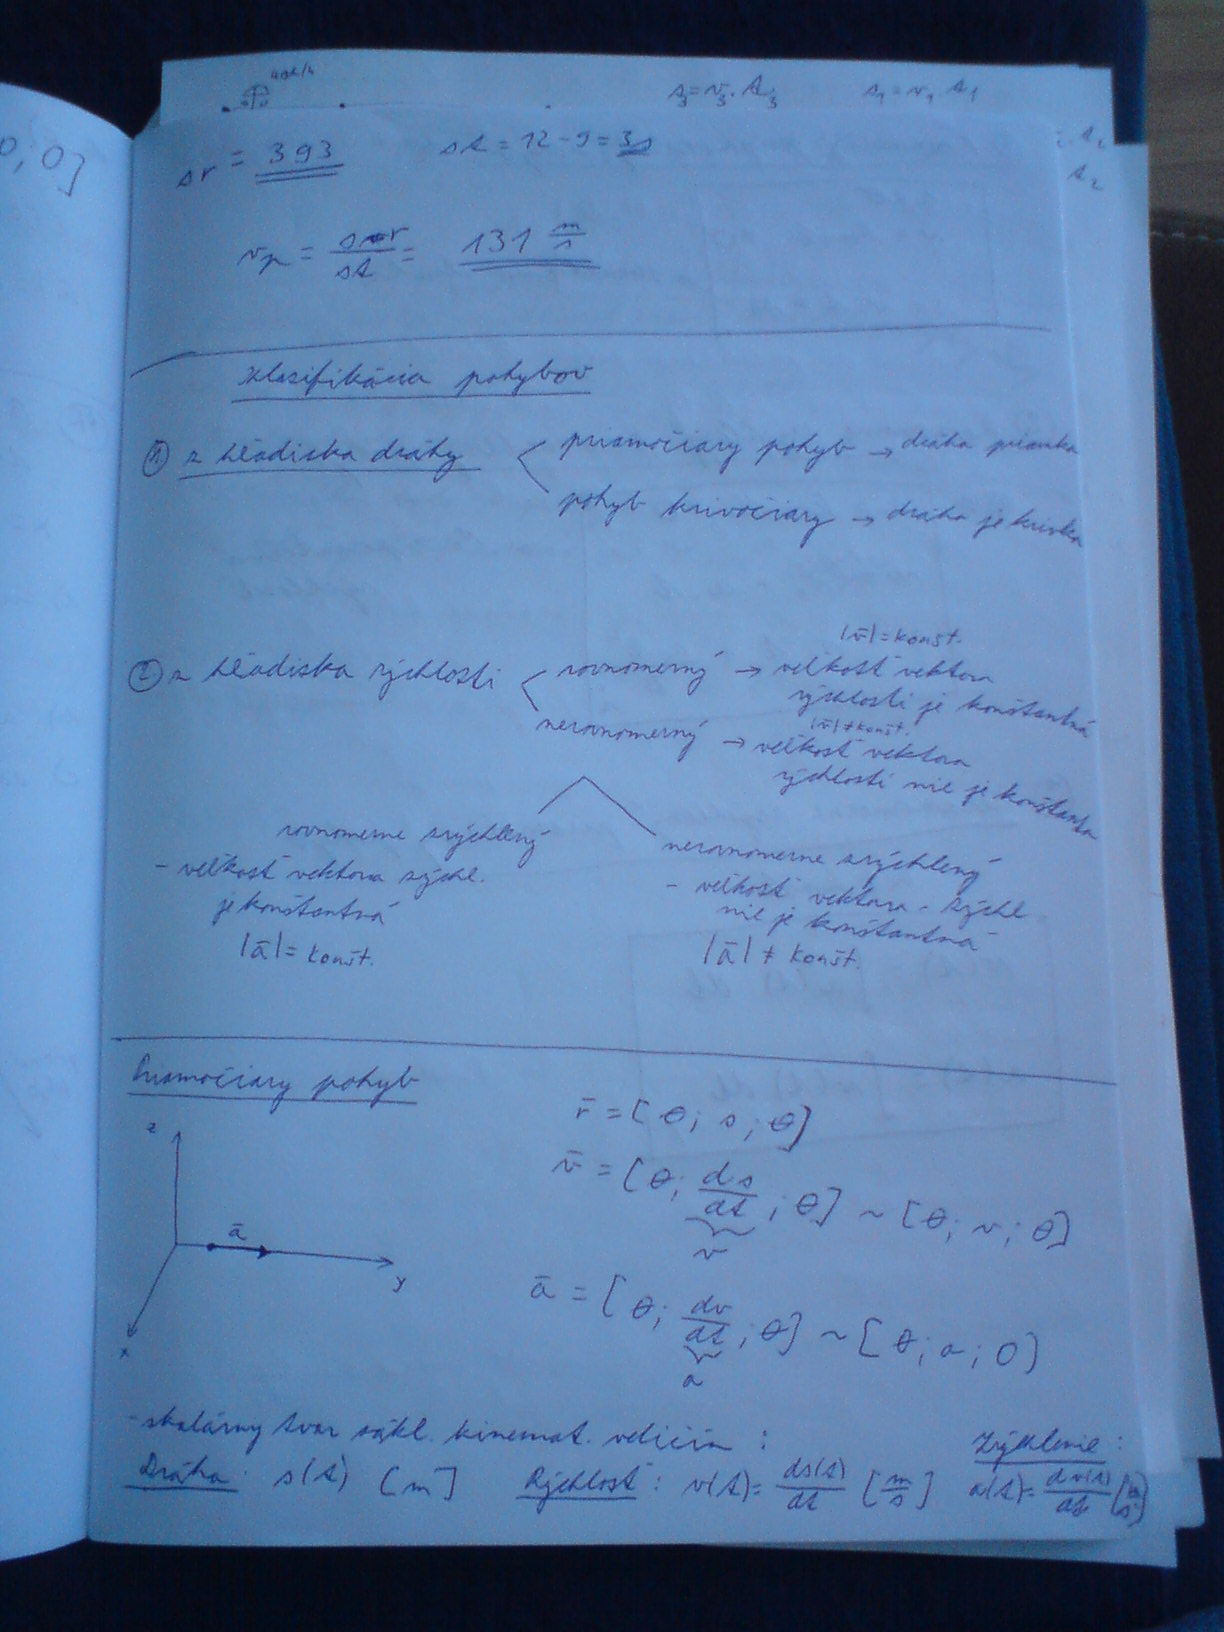 40k/h
s₃=v₃.t₃ s₁=v₁.t₁
t₂
t₂
0;0]
sr = 393 st = 12-9=3s
vp = sr/st = 131 m/s
Klasifikácia pohybov
① z hľadiska dráhy < priamočiary pohyb → dráha priamka
pohyb krivočiary → dráha je krivka
|v̄|=konšt.
② z hľadiska rýchlosti < rovnomerný → veľkosť vektora
rýchlosti je konštantná
|v̄|≠konšt.
nerovnomerný → veľkosť vektora
rýchlosti nie je konštantná
rovnomerne zrýchlený
- veľkosť vektora zrýchl.
je konštantná
|ā|= konšt.
nerovnomerne zrýchlený
- veľkosť vektora zrýchl.
nie je konštantná
|ā| ≠ konšt.
Priamočiary pohyb
z
ā
y
x
r̄ = [0; s; 0]
v̄ = [0; ds/dt; 0] ~ [0; v; 0]
v
ā = [0; dv/dt; 0] ~ [0; a; 0]
a
- skalárny tvar zákl. kinemat. veličín :
Dráha: s(t) [m] Rýchlosť: v(t)= ds(t)/dt [m/s] Zrýchlenie: a(t)= dv(t)/dt